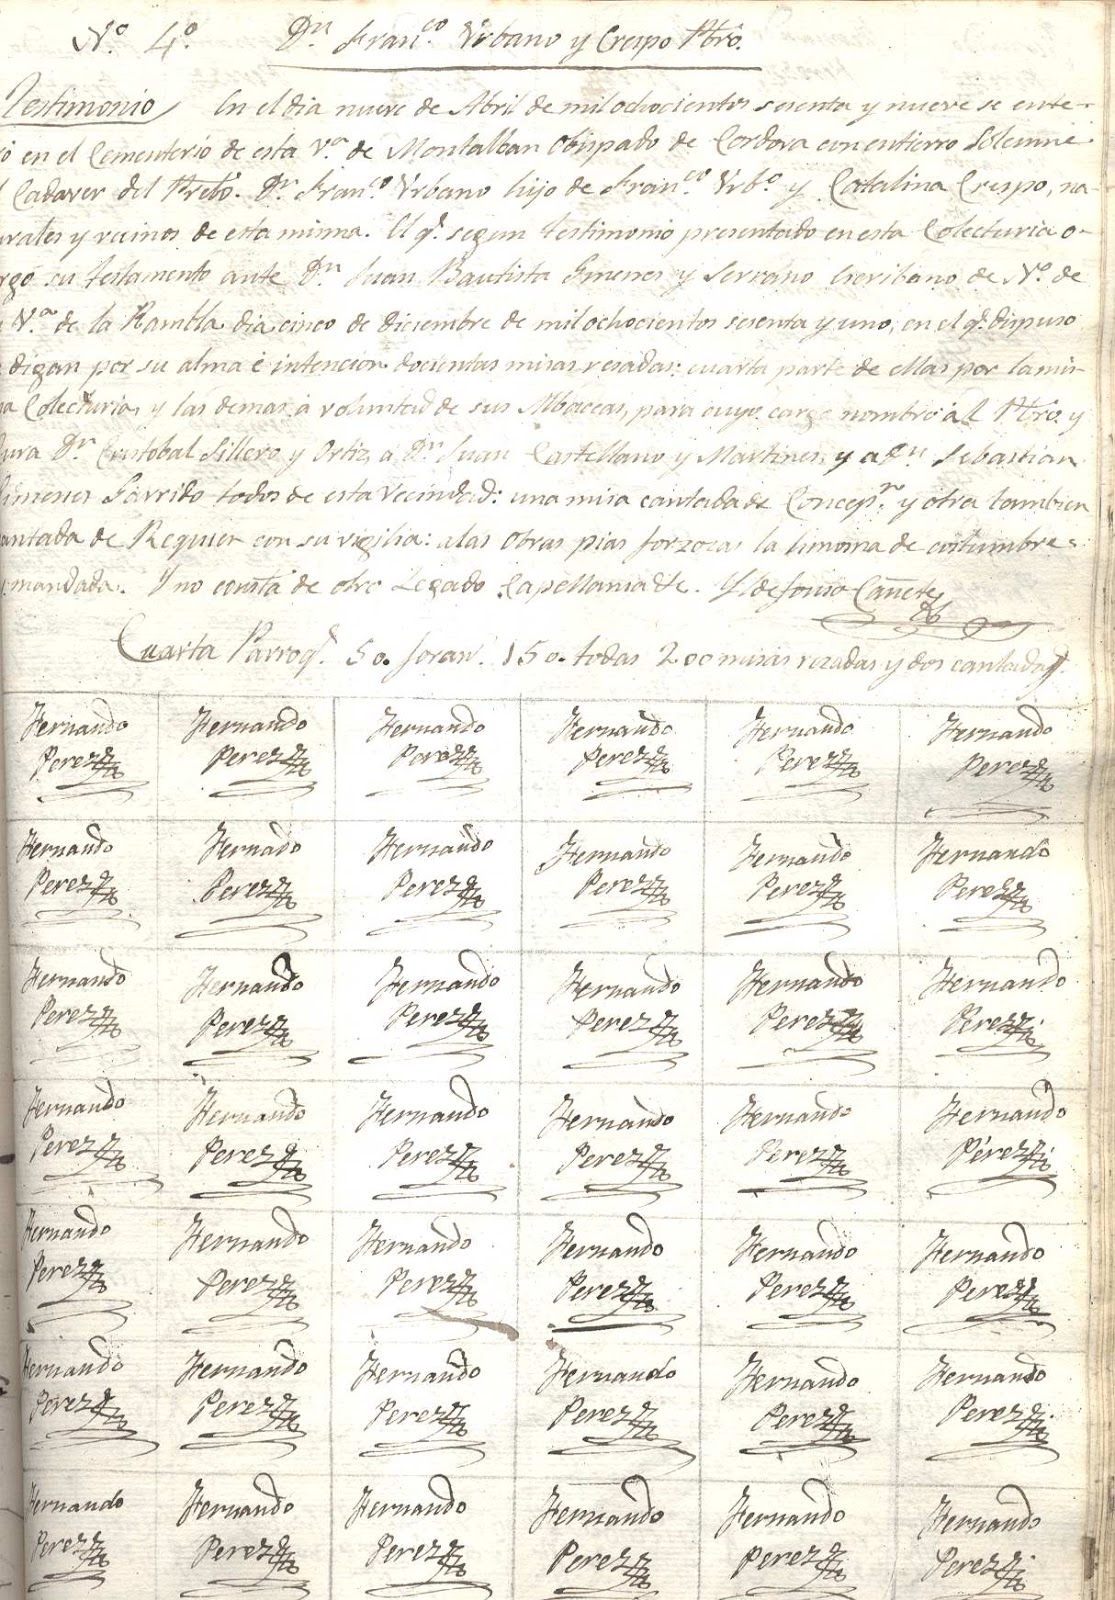 Nº. 4º. Dn. Franco. Vrbano y Crespo Pbrô.
Testimonio En el dia nueve de Abril de mil ochocientos sesenta y nueve se ente-
ró en el Cementerio de esta Va. de Montalban Obispado de Cordova con entierro Solemne
l Cadaver del Prebo. Dn. Franco Vrbano hijo de Franco. Vrbo y Catalina Crespo, na-
urales y vecinos de esta misma. El qe. segun testimonio presentado en esta Colecturia o-
rgó su testamento ante Dn Juan Bautista Gimenes y Serrano Escribano de No. de
Va. de la Rambla dia cinco de diciembre de mil ochocientos sesenta y uno, en el qe. dispuso
digan por su alma é intencion docientas misas resadas: cuarta parte de ellas por la mis-
a Colecturia, y las demas á voluntad de sus Albaceas, para cuyo cargo nombró al Pbro. y
ura Dn. Cristobal Sillero y Ortiz, a Dn. Juan Castellano y Martines, y a Dn Sebastian
imenes Garrido todos de esta vecindad: una misa cantada de Concepn. y otra tambien
antada de Requien con su vigilia: a las Obras pias forzozas la limosna de costumbre
mandada. Y no consta de otro Legado Capellania &e. Yldefonso Cañete
Cuarta Parroql. 50. foran. 150. todas 200 misas rezadas y dos cantadas.
Hernando Hernando Hernando Hernando Hernando Hernando
Perez Perez Perez Perez Perez Perez
Hernando Hernado Hernando Hernando Hernando Hernando
Perez Perez Perez Perez Perez Perez
Hernando Hernando Hernando Hernando Hernando Hernando
Perez Perez Perez Perez Perez Perez
Hernando Hernando Hernando Hernando Hernando Hernando
Perez Perez Perez Perez Perez Perez
Hernando Hernando Hernando Hernando Hernando Hernando
Perez Perez Perez Perez Perez Perez
Hernando Hernando Hernando Hernando Hernando Hernando
Perez Perez Perez Perez Perez Perez
Hernando Hernando Hernando Hernando Hernando Hernando
Perez Perez Perez Perez Perez Perez